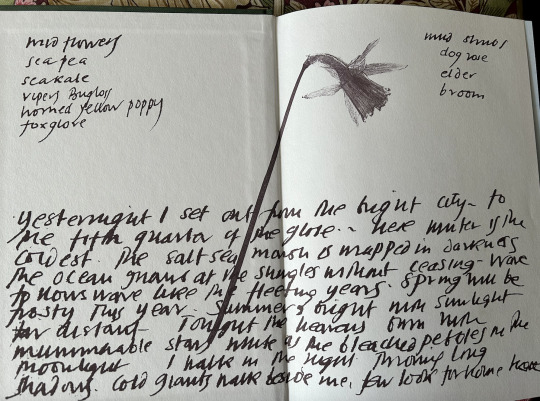 wild flowers
sea pea
sea kale
vipers Bugloss
horned yellow poppy
foxglove
wild shrubs
dog rose
elder
broom
Yesternight I set out from the bright city - to
the fifth quarter of the globe - here winter is the
coldest. The salt sea marsh is wrapped in darkness
the ocean gnaws at the shingles without ceasing - wave
follows wave like the fleeting years. Spring will be
frosty this year. Summer's bright with sunlight
far distant Tonight the heavens burn with
innumerable stars white as the bleached pebbles in the
moonlight I walk in the night throwing long
shadows. Cold giants walk beside me, few look for home